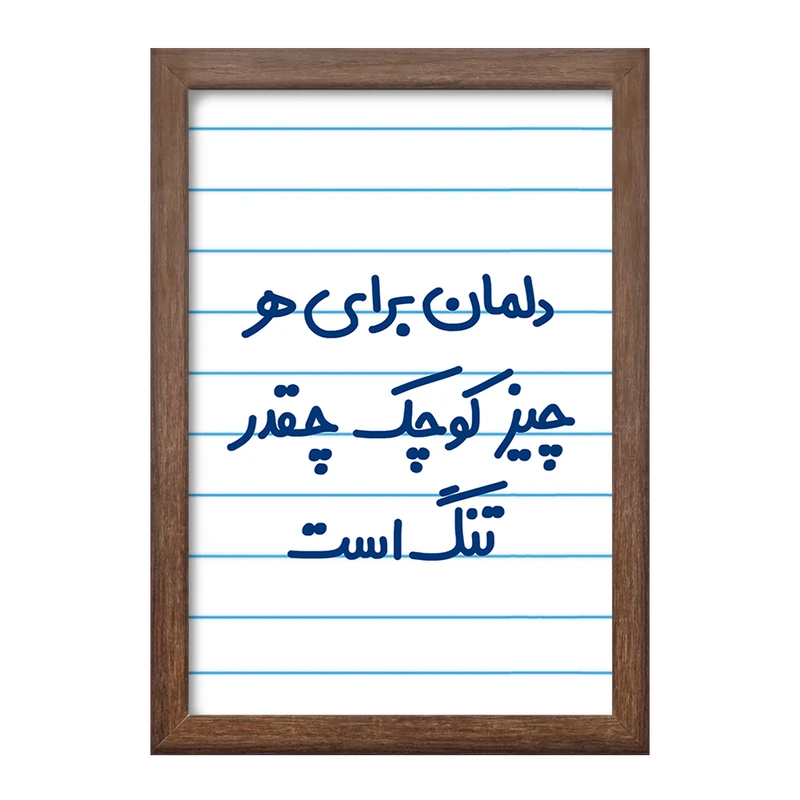 دلمان برای هر
چیز کوچک چقدر
تنگ است